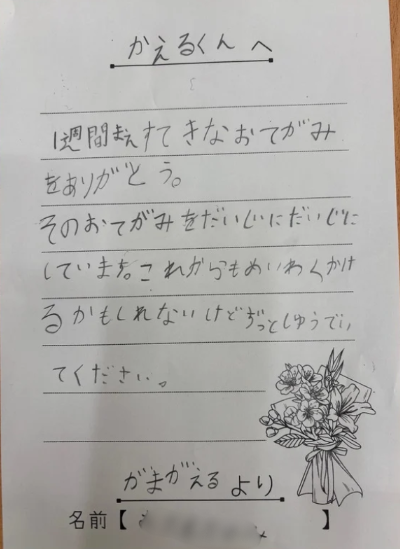 かえるくん へ
1週間まえすてきなおてがみ
をありがとう。
そのおてがみをだいじにだいじに
しています。これからもめいわくかけ
るかもしれないけどずっとしゅうでい
てください。
がまがえる より
名前【 】